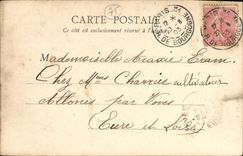 CARTE POSTALE
Ce côté est exclusivement réservé à l'adresse
Mademoiselle
Chez Mme Charrier cultivateur
Allonnes par Voves
(Eure et Loir)